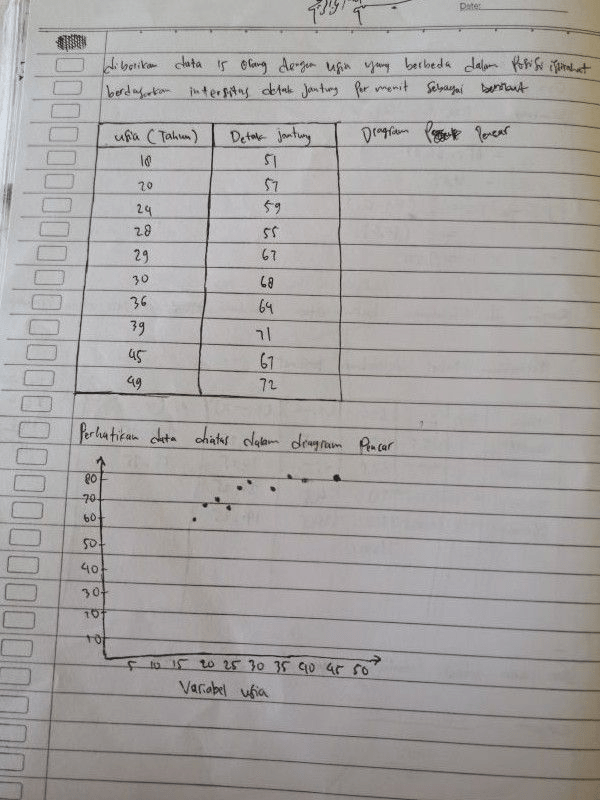 Date:
diberikan data 15 orang dengan usia yang berbeda dalam Posisi istirahat
berdasarkan intensitas detak jantung Per menit sebagai berikut
usia (Tahun) Detak jantung Diagram Pencar
18 51
20 57
24 59
28 55
29 67
30 68
36 64
39 71
45 67
49 72
Perhatikan data diatas dalam diagram Pencar
80
70
60
50
40
30
20
10
5 10 15 20 25 30 35 40 45 50
Variabel usia